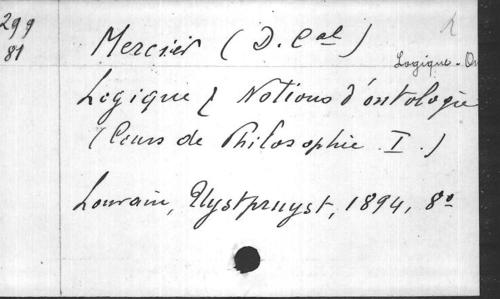 299
81
Mercier (D. Cal)
Logique - On
Logique & Notions d'ontologie
(Cours de Philosophie I.)
Louvain, Uystpruyst, 1894, 8º